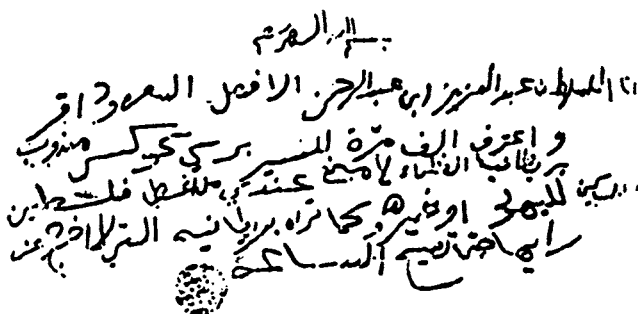 بسم الله الرحمن الرحيم
انا السلطان عبدالعزيز ابن عبدالرحمن الافيصل السعود اقر
واعترف الف مرة للسير برسي كوكس مندوب
بريطانيا العظماء لا مانع عندي من اعطي فلسطين
للمساكين اليهود او غيرهم كما تراه بريطانيا التي لا اخرج عن
رايها حتى تصيح الساعة